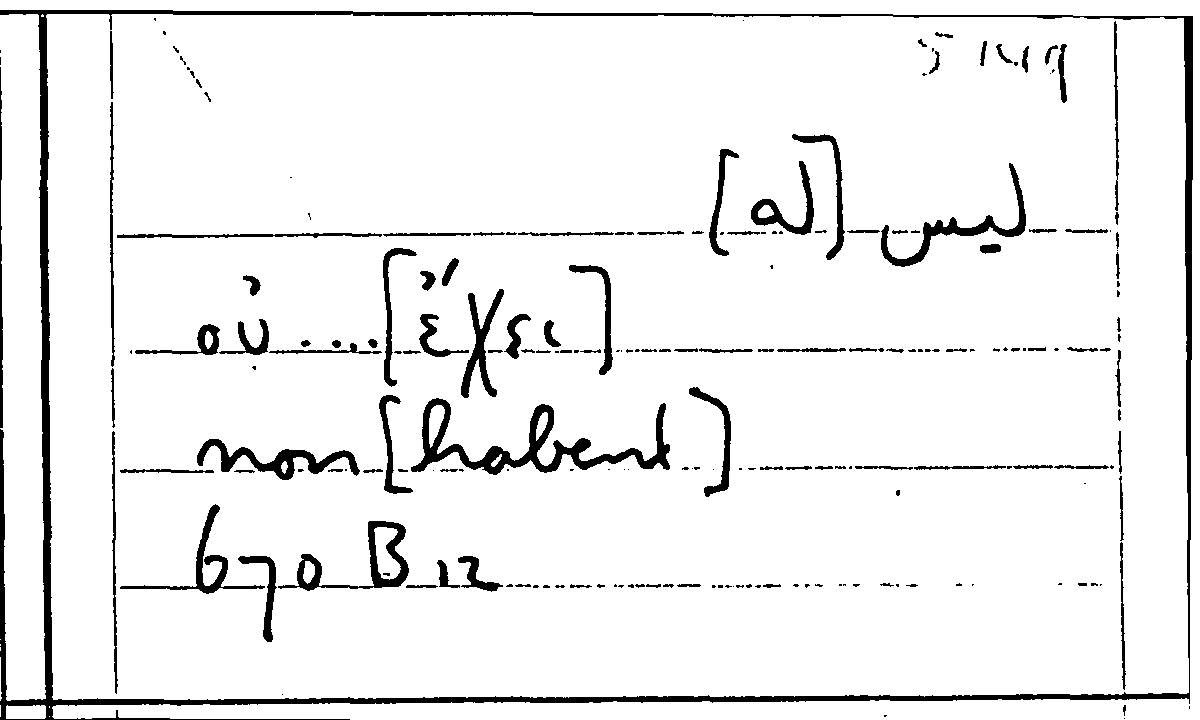 5149
ليس [له]
οὐ .... [ἔχει]
non [habent]
670 B 12